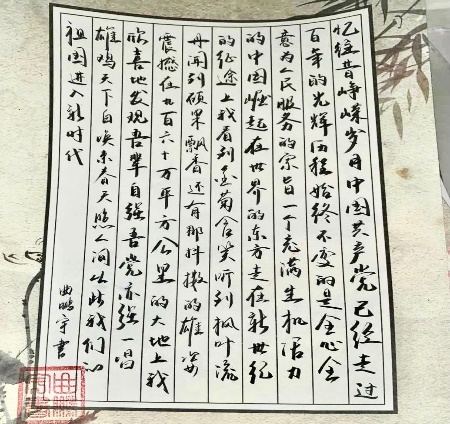 忆往昔峥嵘岁月中国共产党已经走过
百年的光辉历程始终不变的是全心全
意为人民服务的宗旨一个充满生机活力
的中国崛起在世界的东方走在新世纪
的征途上我看到金菊含笑听到枫叶流
丹闻到硕果飘香还有那抖擞的雄姿
震撼在九百六十万平方公里的大地上我
欣喜地发现吾辈自强吾党亦强一唱
雄鸡天下白唤来春天照人间从此我们的
祖国进入新时代
曲鹏宇书